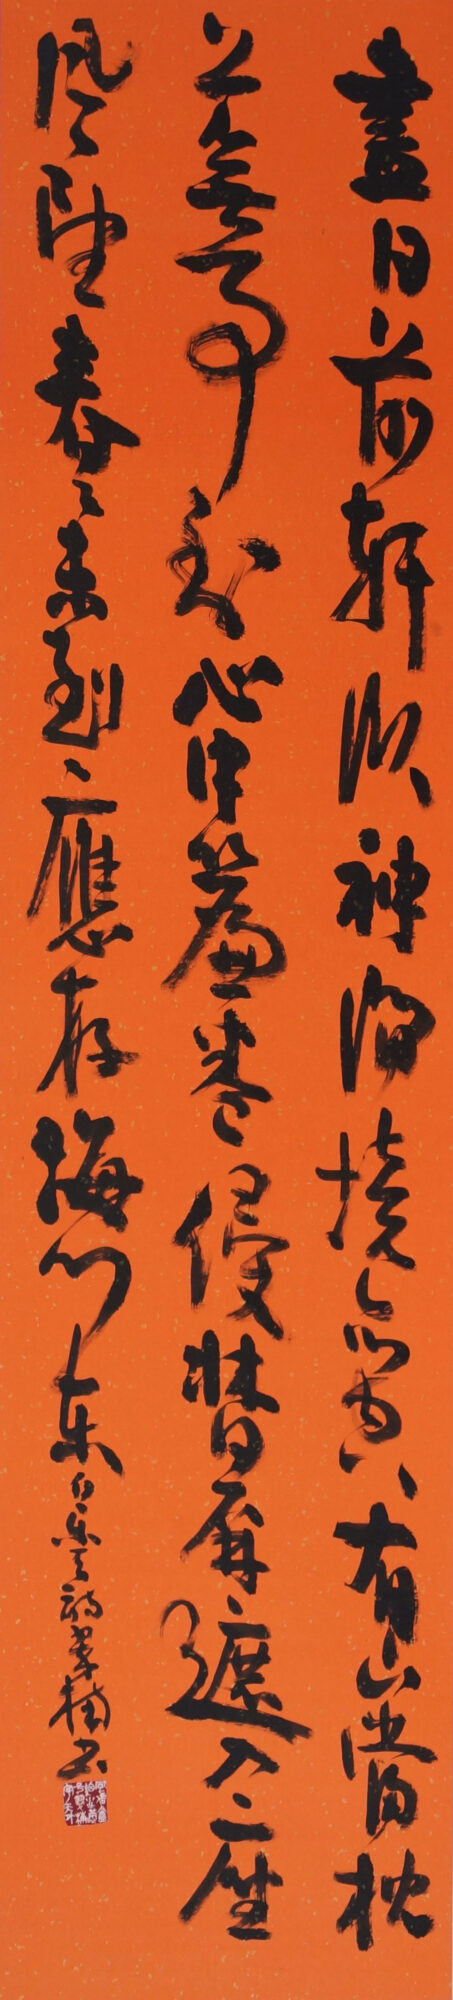 盡日前軒臥神閒境亦空有山當枕
上無事到心中簾卷侵牀日屏遮入座
風望春々未到應在海門東 白樂天詩 楠书